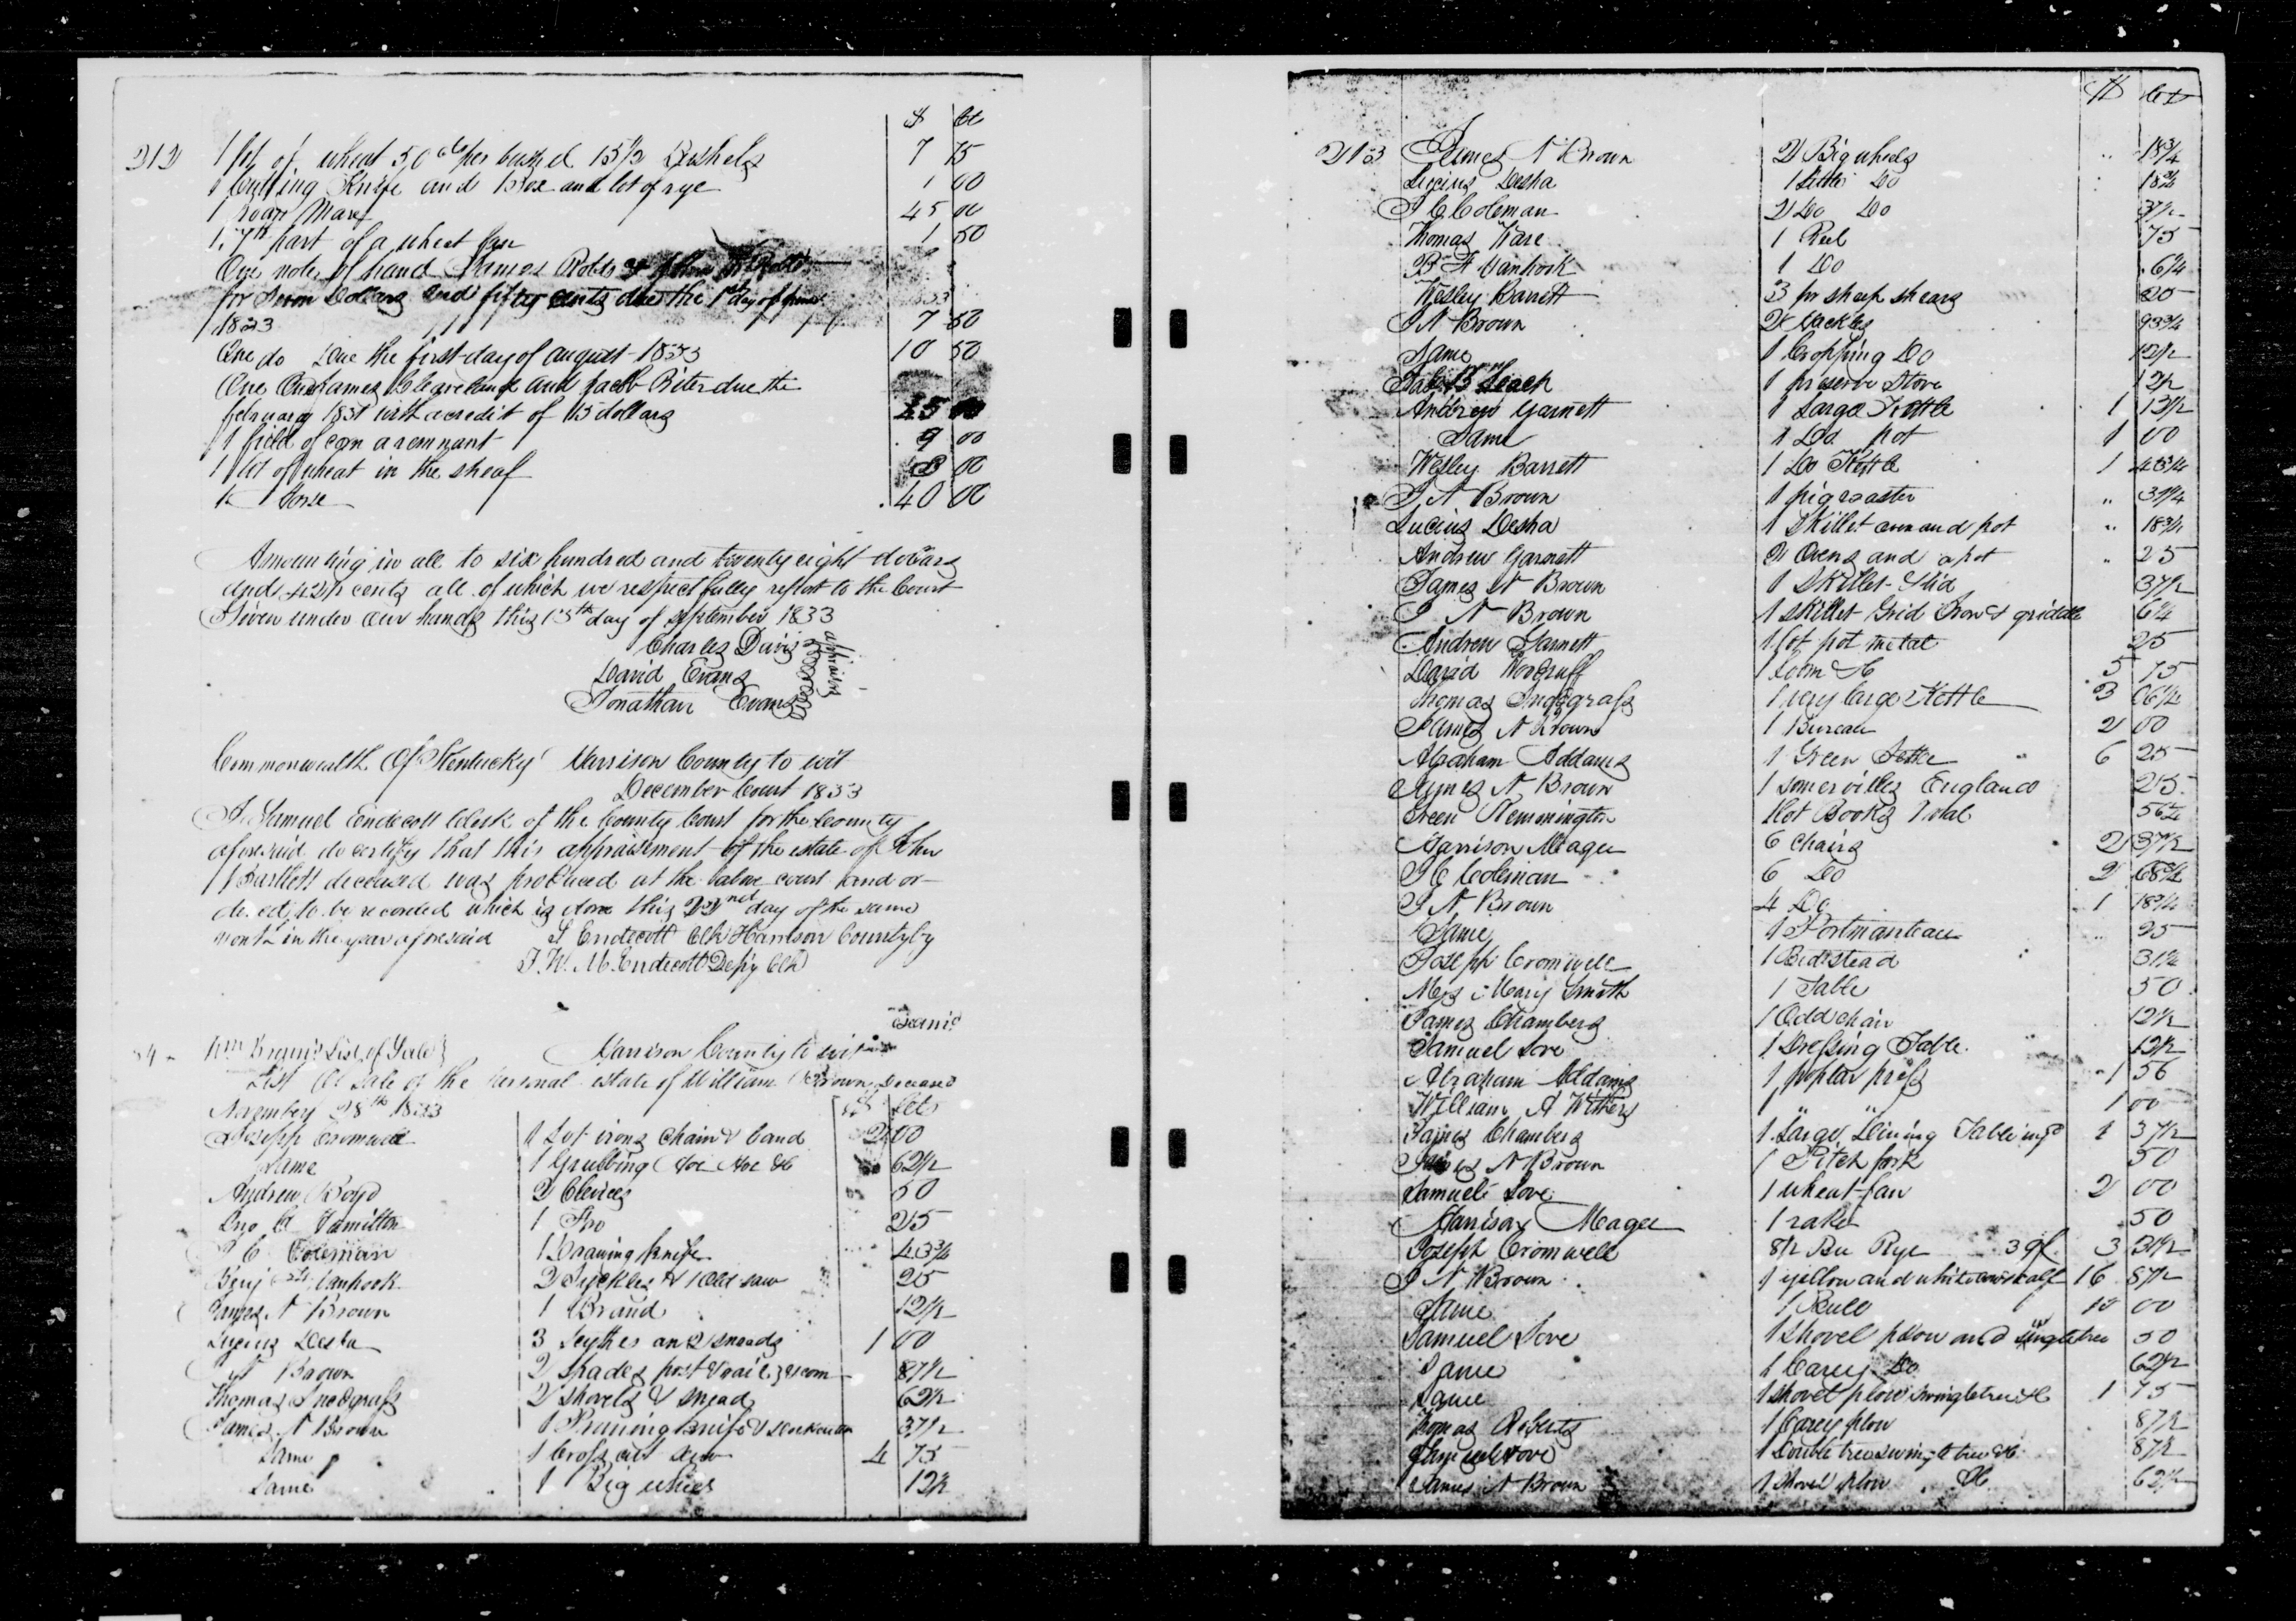 $ Cts
212 1 lot of wheat 50 cts per bushel 15½ Bushels 7 75
1 Cutting Knife and Box and lot of rye 1 00
1 roan Mare 45 00
1, 7th part of a wheat fan 1 50
One note of hand James Robb
for Seven Dollars and fifty cents due the 1st day of
1833 7 50
One do Due the first day of august 1833 10 50
One On James Cleaveland and Jacob Riter due the
february 1831 with a credit of 15 dollars 25 00
1 field of corn a remnant 9 00
1 lot of wheat in the sheaf 8 00
1 Horse 40 00
Amounting in all to six hundred and twenty eight dollars
and 42½ cents all of which we respectfully report to the Court
Given under our hands this 13th day of September 1833
Charles Davis
David Evans
Jonathan Evans
apraisors
Commonwealth Of Kentucky Harrison County to wit
December Court 1833
I Samuel Endecott Clerk of the County Court for the County
aforesaid do certify that this appraisement of the estate of John
Bartlett deceased was produced at the above court and or-
dered to be recorded which is done this 22nd day of the same
month in the year aforesaid S Endecott Clk Harrison County by
J. W. M. Endecott Depy Clk
Wm Brown's List of Sale} Harrison County to wit
List Of sale of the personal estate of William Brown Deceased
November 28th 1833 $ Cts
Joseph Cromwell 1 Lot irons Chain & band 2 00
Same 1 Grubbing Hoe Hoe &c 62½
Andrew Boyd 2 Clevices 50
Jno Hamilton 1 25
J C Coleman 1 Drawing knife 43¾
Benj Vanhook 2 Syckles & 1 Old saw 25
James N Brown 1 Brand 12½
Lucius Desha 3 Scythes and sneads 1 00
N Brown 2 Spades post & rail 87½
Thomas Snodgrass 2 shovels & snead 62½
James N Brown 1 Pruning knife & 37½
Same 1 Cross cut saw 4 75
Same 1 Big wheel 12½
$ Cts
213 James N Brown 2 Big wheels .. 18¾
Lucius Desha 1 Little Do 18¾
J C Coleman 2 Do Do 37½
Thomas Ware 1 Reel 75
B F Vanhook 1 Do 6¼
Wesley Barrett 3 pr sheep shears 25
J N Brown 2 Hackles 93¾
Same 1 Cropping Do 12½
B Leach 1 preserve Stove 12½
Andrew Garnett 1 Large Kettle 1 13½
Same 1 Do pot 1 00
Wesley Barrett 1 Do Kettle 1 43¾
J N Brown 1 pig roaster .. 31¼
Lucius Desha 1 Skillet oven and pot .. 18¾
Andrew Garnett 2 Ovens and a pot .. 25
James N Brown 1 Skillet & lid 37½
J N Brown 1 skillet Grid Iron & griddle 6¼
Andrew Garnett 1 lot pot metal 25
David Woodruff 1 Loom &c 5 75
Thomas Snodgrass 1 very large Kettle 3 06¼
James N Brown 1 Bureau 2 00
Abraham Addams 1 Green Settee 6 25
James N Brown 1 Somervilles England 25
Green Remmington 1 lot Books 56¼
Harrison Magee 6 Chairs 2 37½
J C Coleman 6 Do 2 68¾
J N Brown 4 Do 1 18¾
Same 1 Portmanteau .. 25
Joseph Cromwell 1 Bedstead 31¼
Mrs Mary Smith 1 Table 50
James Chambers 1 Odd chair 12½
Samuel Love 1 Dressing Table 12½
Abraham Addams 1 poplar press 1 56
William A Withers 1 " " 1 00
James Chambers 1 Large Dining Table 1 37½
James N Brown 1 Pitch fork 50
Samuel Love 1 wheat fan 2 00
Harrison Magee 1 rake 50
Joseph Cromwell 8½ Bu Rye 3 31½
J N Brown 1 yellow and white cow & calf 16 87½
Same 1 Bull 10 00
Samuel Love 1 Shovel plow and singletree 50
Same 1 Carey Do 62½
Same 1 shovel plow swingletree &c 1 75
Thomas Roberts 1 Carey plow 87½
Samuel Love 1 Double tree swingletree &c 87½
James N Brown 1 shovel plow &c 62½